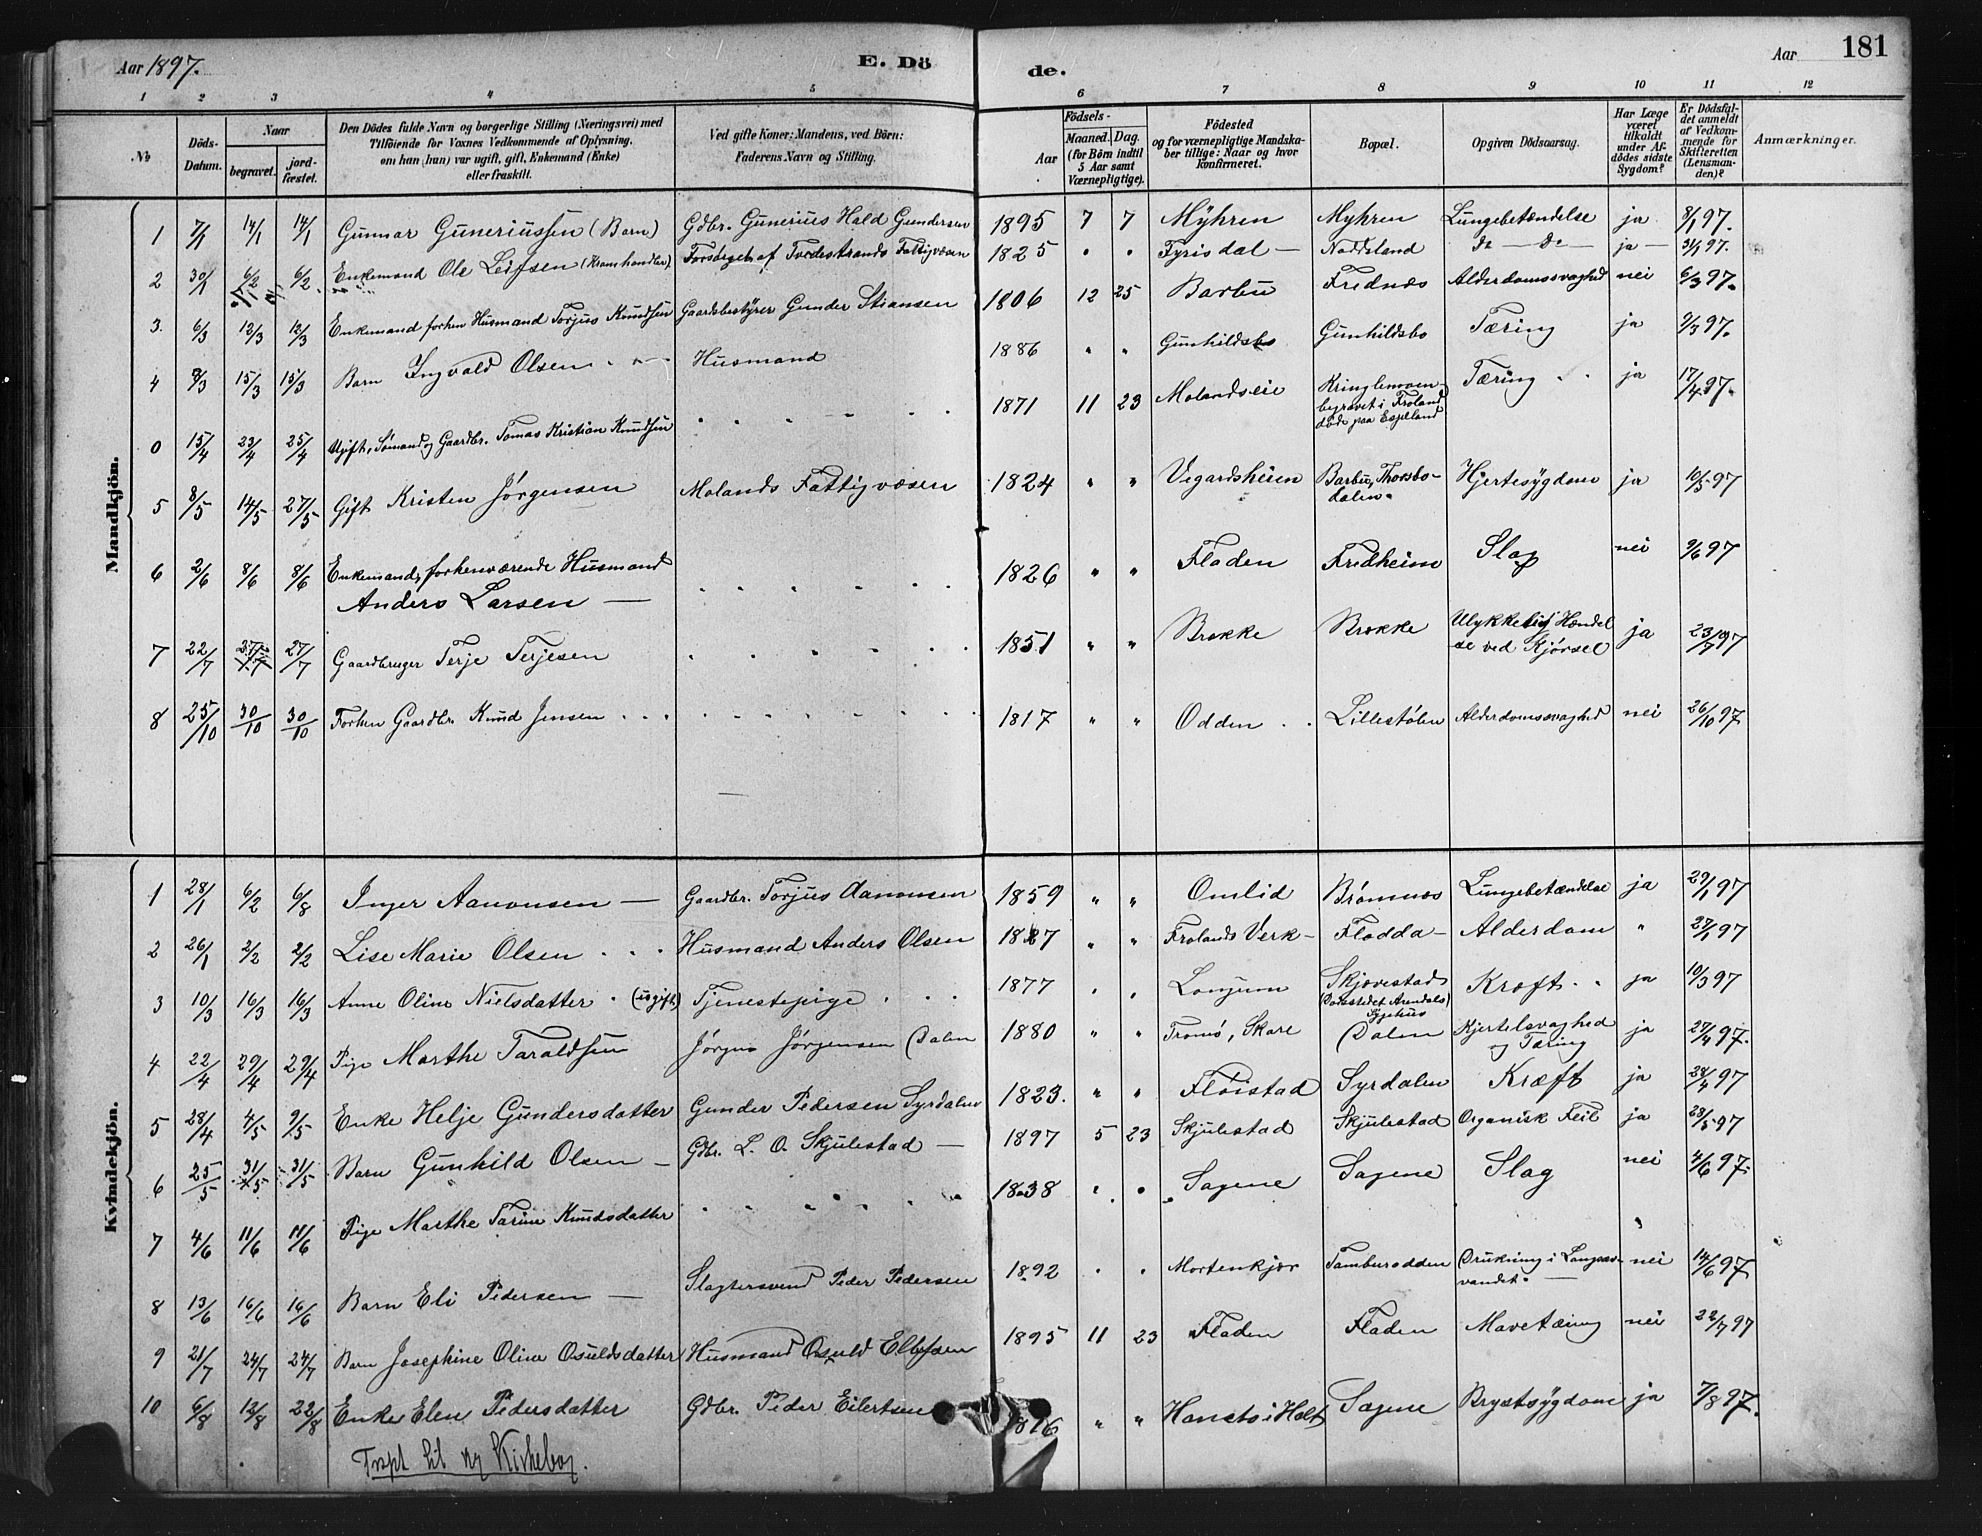 Aar 1897. E. Dö de. Aar 181
1 2 3 4 5 6 7 8 9 10 11 12
No
Döds-Datum.
Naar
begravet. jord-fæstet.
Den Dödes fulde Navn og borgerlige Stilling (Næringsvei) med
Tilföiende for Voxnes Vedkommende af Oplysning,
om han (hun) var ugift, gift, Enkemand (Enke)
eller fraskilt.
Ved gifte Koner: Mandens, ved Börn:
Faderens Navn og Stilling.
Födsels-
Aar Maaned. Dag.
(for Börn indtil
5 Aar samt
Værnepligtige).
Födested
og for værnepligtige Mandska-
ber tillige: Naar og hvor
konfirmeret.
Bopæl.
Opgiven Dödsaarsag.
Har Læge
været
tilkaldt
under Af-
dödes sidste
Sygdom?
Er Dödsfal-
det anmeldt
af Vedkom-
mende for
Skifteretten
(Lensman-
den)?
Anmærkninger.
Mandkjön.
1 7/1 14/1 14/1 Gunnar Guneriussen (Barn) Gdbr. Gunerius Hald Gundersen 1895 7 7 Myhren Myhren Lungebetændelse ja 8/1 97.
2 30/1 6/2 6/2 Enkemand Ole Leifsen (Kramhandler) Forsørget af Tvedestrands Fattigvæsen 1825 " " Fyrisdal — Noddeland Do — Do — ja — 31/1 97.
3. 6/3 12/3 12/3 Enkemand forhen Husmand Torjus Knudsen Gaardsbestyrer Gunder Stiansen 1806 12 25 Barbu Frednæs Alderdomssvaghed nei 6/3 97.
4 8/3 15/3 15/3 Barn Ingvald Olsen Husmand 1886 " " Gunhildsbo Gunhildsbo Tæring ja 9/3 97.
0 15/4 23/4 25/4 Ugift, Sømand og Gaardbr. Tomas Kristian Knudsen 1871 11 23 Molandseie Kringlemoen
begravet i Froland
døde paa Espeland Tæring ja 17/4 97.
5 8/5 14/5 27/5 Gift Kristen Jørgensen Molands Fattigvæsen 1824 " " Vegardsheien Barbu, Thorsbo-
dalen. Hjertesygdom ja 10/5 97
6 2/6 8/6 8/6 Enkemand, forhenværende Husmand
Anders Larsen — 1826 " " Fladen Fredheim Slag nei 9/6 97
7 22/7 27/7 27/7 Gaardbruger Terje Terjesen 1851 " " Brekke Brekke Ulykkelig Hændel
se ved Kjørsel ja 23/7 97
8 25/10 30/10 30/10 Forhen Gaardbr. Knud Jensen 1817 " " Odden Lillestølen Alderdomssvaghed nei 26/10 97.
Kvindekjön.
1 28/1 6/2 6/8 Inger Aanonsen — Gaardbr. Torjus Aanonsen 1859 " " Omlid Brømnæs Lungebetændelse ja 29/1 97
2 26/1 2/2 2/2 Lise Marie Olsen Husmand Anders Olsen 1827 " " Frolands Verk — Flodda — Alderdom " 27/1 97
3 10/3 16/3 16/3 Anne Oline Nielsdatter (ugift) Tjenestepige 1877 " " Longum Skjøvestad
(Dødsstedet Arendals
Sygehus) Kræft ja 10/3 97
4 22/4 29/4 29/4 Pige Marthe Taraldsen Jørgen Jørgensen Dalen 1880 " " Tromø, Skare Dalen Kjertelsvaghed
og Tæring ja 27/4 97.
5 28/4 4/5 9/5 Enke Helje Gundersdatter Gunder Pedersen Syrdalen 1823. " " Fløistad Syrdalen Kræft ja 28/4 97
6 25/5 31/5 31/5 Barn Gunhild Olsen — Gdbr. L. O. Skjulestad — 1897 5 23 Skjulestad Skjulestad Organisk Feil ja 28/5 97
7 4/6 11/6 11/6 Pige Marthe Tarine Knudsdatter 1838 " " Sagene Sagene Slag nei 4/6 97.
8 13/6 16/6 16/6 Barn Eli Pedersen — Slagtersvend Peder Pedersen 1892 " " Mortenkjær Tamburodden Drukning i Langsæ-
vandet. — nei 14/6 97
9 21/7 24/7 24/7 Barn Josephine Oline Osuldsdatter Husmand Osuld Ellefsen 1895 11 23 Fladen Fladen Mavetæring nei 22/7 97
10 6/8 12/8 22/8 Enke Elen Pedersdatter Gdbr. Peder Eilertsen 1816 " " Hansto i Holt Sagene Brystsygdom ja 7/8 97.
Trspt til ny Kirkebog.